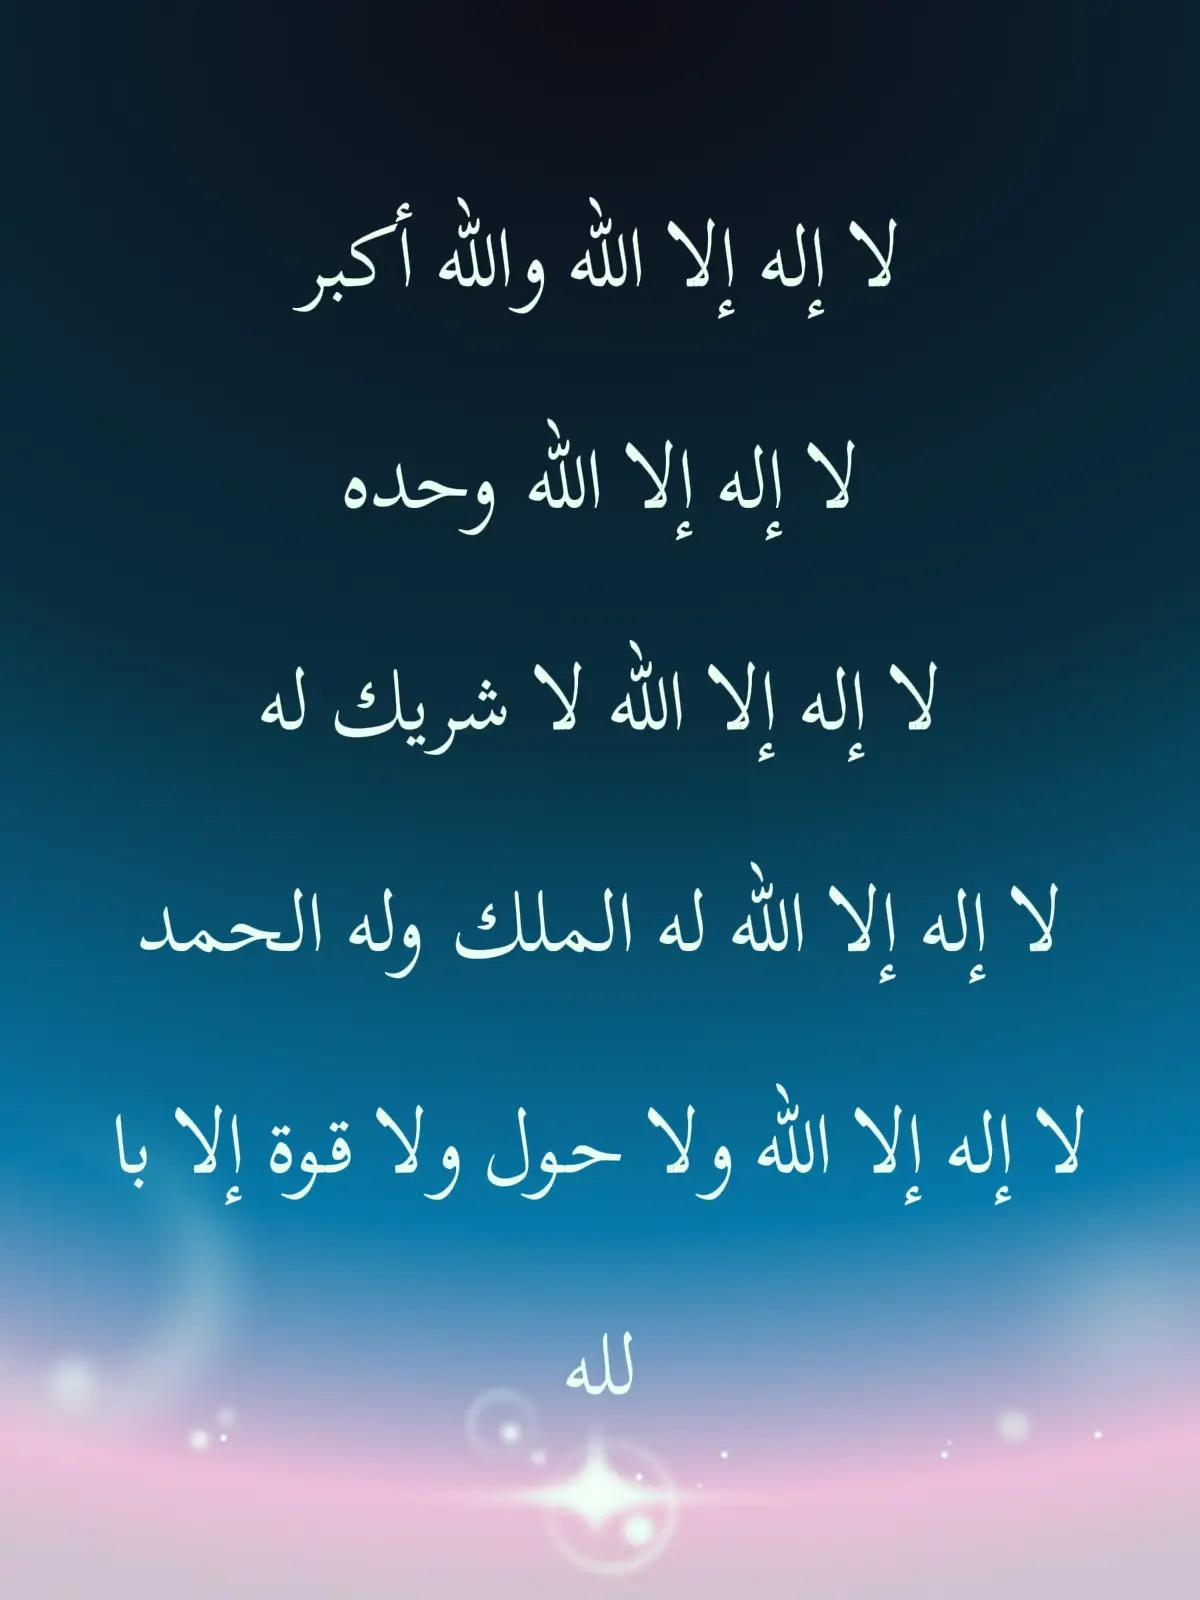 لا إله إلا الله والله أكبر
لا إله إلا الله وحده
لا إله إلا الله لا شريك له
لا إله إلا الله له الملك وله الحمد
لا إله إلا الله ولا حول ولا قوة إلا با
لله